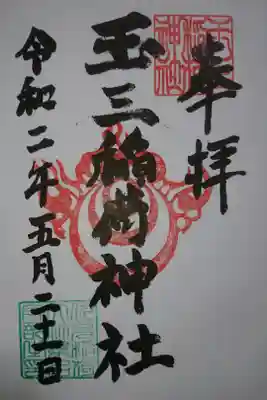 奉拝
玉三稲荷神社
令和二年五月二十一日